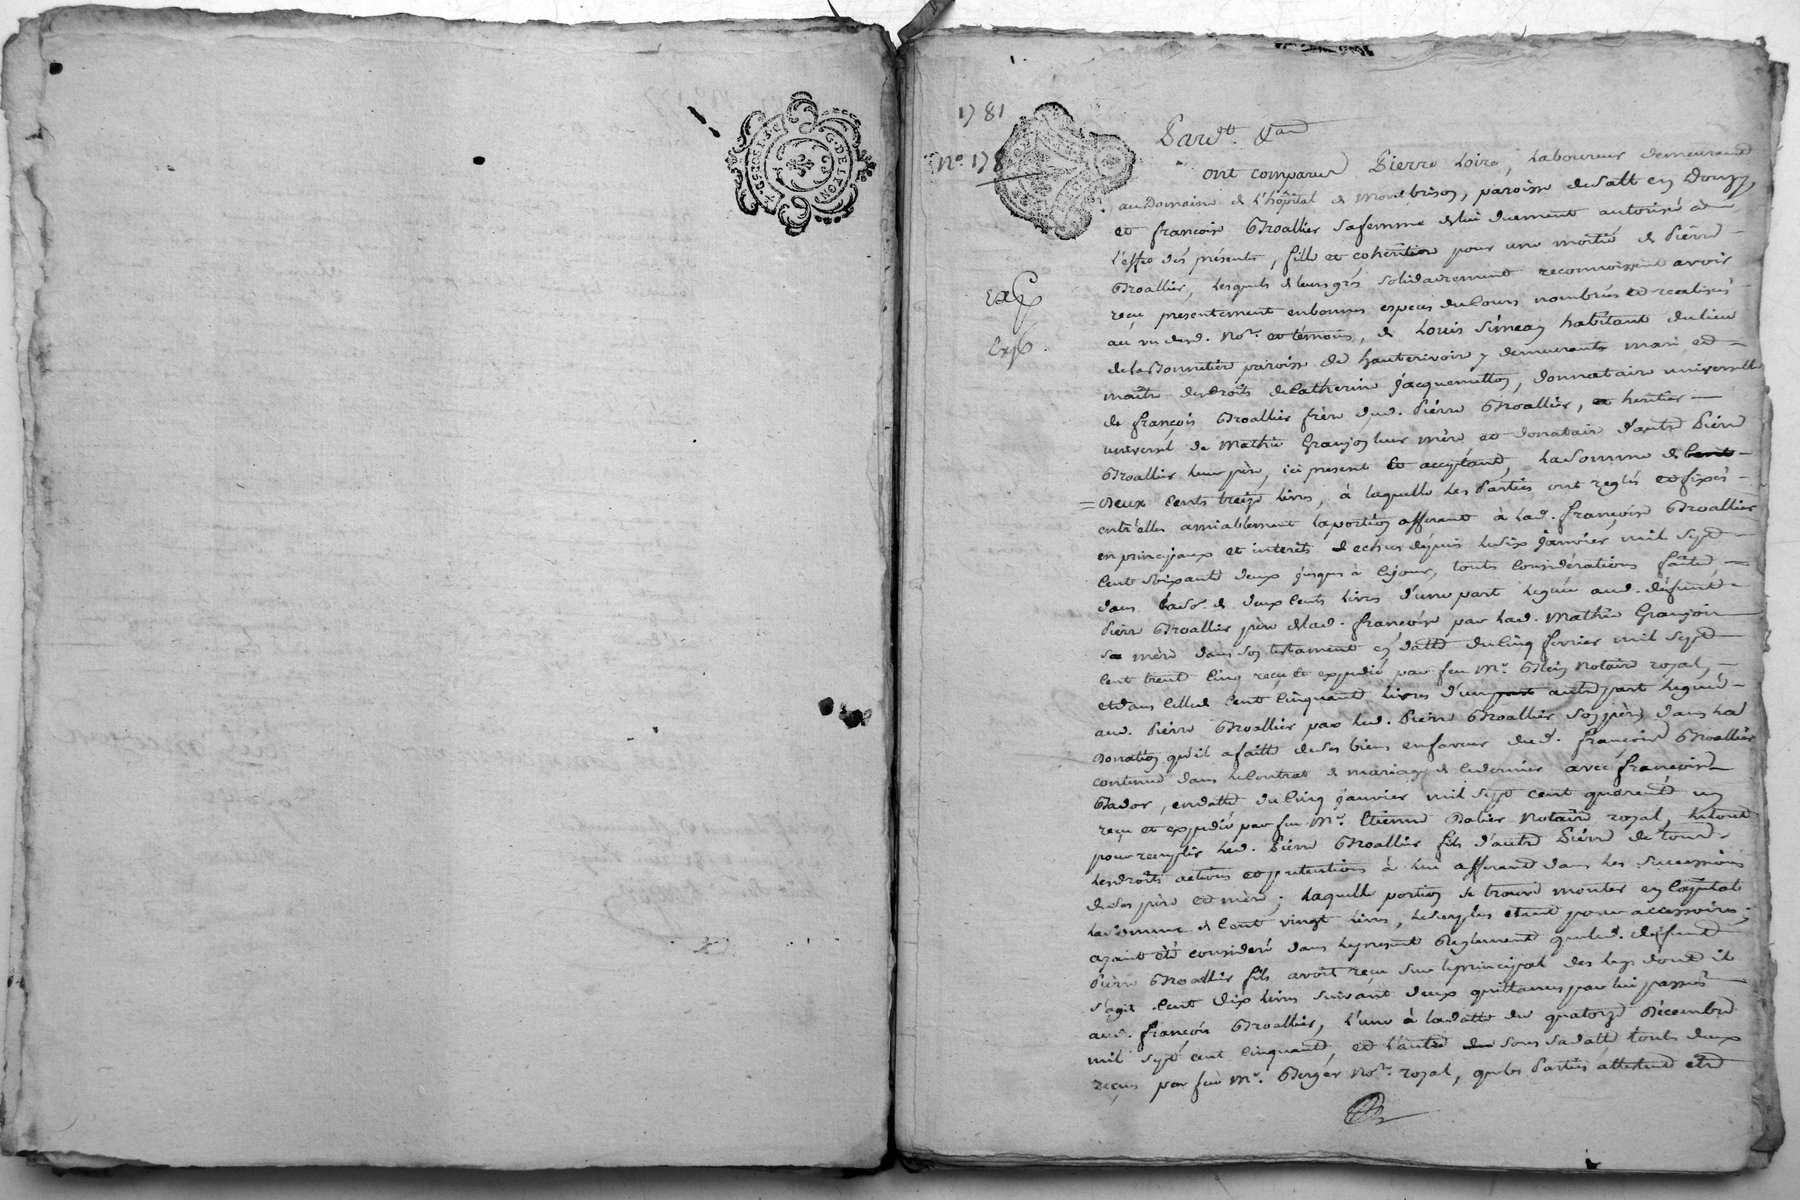 G. DE LYON
1781
No. 178
Pardt. &
ont comparus Pierre Loire, Laboureur demeurant
au Domaine de l'hôpital de Montbrison, paroisse de Salt en Donzy,
et françoise Groallier sa femme de lui duement autorisée à
l'effet des présentes, fille et cohéritière pour une moitié de Pierre
Groallier, lesquels de leurs grés solidairement reconnoissent avoir
Exp
reçu presentement en bonnes especes du Cours nombrées et realisées
au vu dud. Nore. et témoins, de Louis Simean habitant du lieu
Exp.
de la Bonnetière paroisse de hauterivoire y demeurant mari et
maître des droits de Catherine Jacquemetton, donnataire universelle
de françois Groallier frère dud. Pierre Groallier, héritier
universel de Mathie Granjon leur mère et donataire d'autre Pierre
Groallier leur père, ici present et acceptant, la somme de
Deux Cents treize livres, à laquelle les Parties ont reglés et fixés
entr'elles amiablement la portion afferante à lad. françoise Groallier
en principaux et interêts echus depuis le six janvier mil sept
Cent soixante deux jusques à ce jour, toutes considérations faites
dans lad. de deux Cents livres d'une part leguée aud. défunt
Pierre Groallier père de lad. françoise par lad. Mathie Granjon
sa mère dans son testament en datte du cinq fevrier mil sept
Cent trente cinq reçu et expedié par feu Me. Notaire royal,
et dans celle de Cent cinquante livres d'une autre part leguée
aud. Pierre Groallier par led. Pierre Groallier son père, dans la
Donation qu'il a faitte de ses biens en faveur dud. françois Groallier
contenue dans le Contrat de mariage de ce dernier avec françoise
en datte du cinq janvier mil sept cent quarante un
reçu et expedié par feu Me. Etienne Notaire royal, le tout
pour remplir led. Pierre Groallier fils d'autre Pierre de tous
les droits actions et pretentions à lui afferants dans les successions
de ses père et mère; laquelle portion se trouve monter en Capital
la somme de Cent vingt livres, le surplus etant pour accessoires;
ayant été consideré dans le present Reglement que led. defunt
Pierre Groallier fils avoit reçu sur le principal des legs dont il
s'agit Cent dix livres suivant deux quittances par lui passées
aud. françois Groallier, l'une à la datte du quatorze Décembre
mil sept cent cinquante, et l'autre sous sa datte, toutes deux
reçues par feu Me. Berger Nore. royal, que les Parties attestent etre